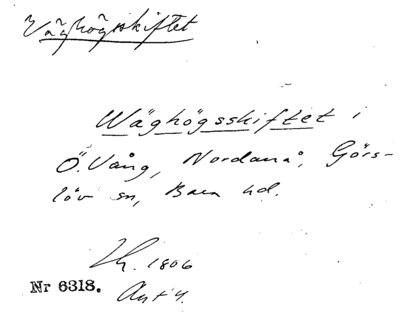 Väghögsskiftet
Wäghögsskiftet i
Ö. Vång, Nordanå, Görs-
löv sn, Bara hd.
1806
Nr 6318.